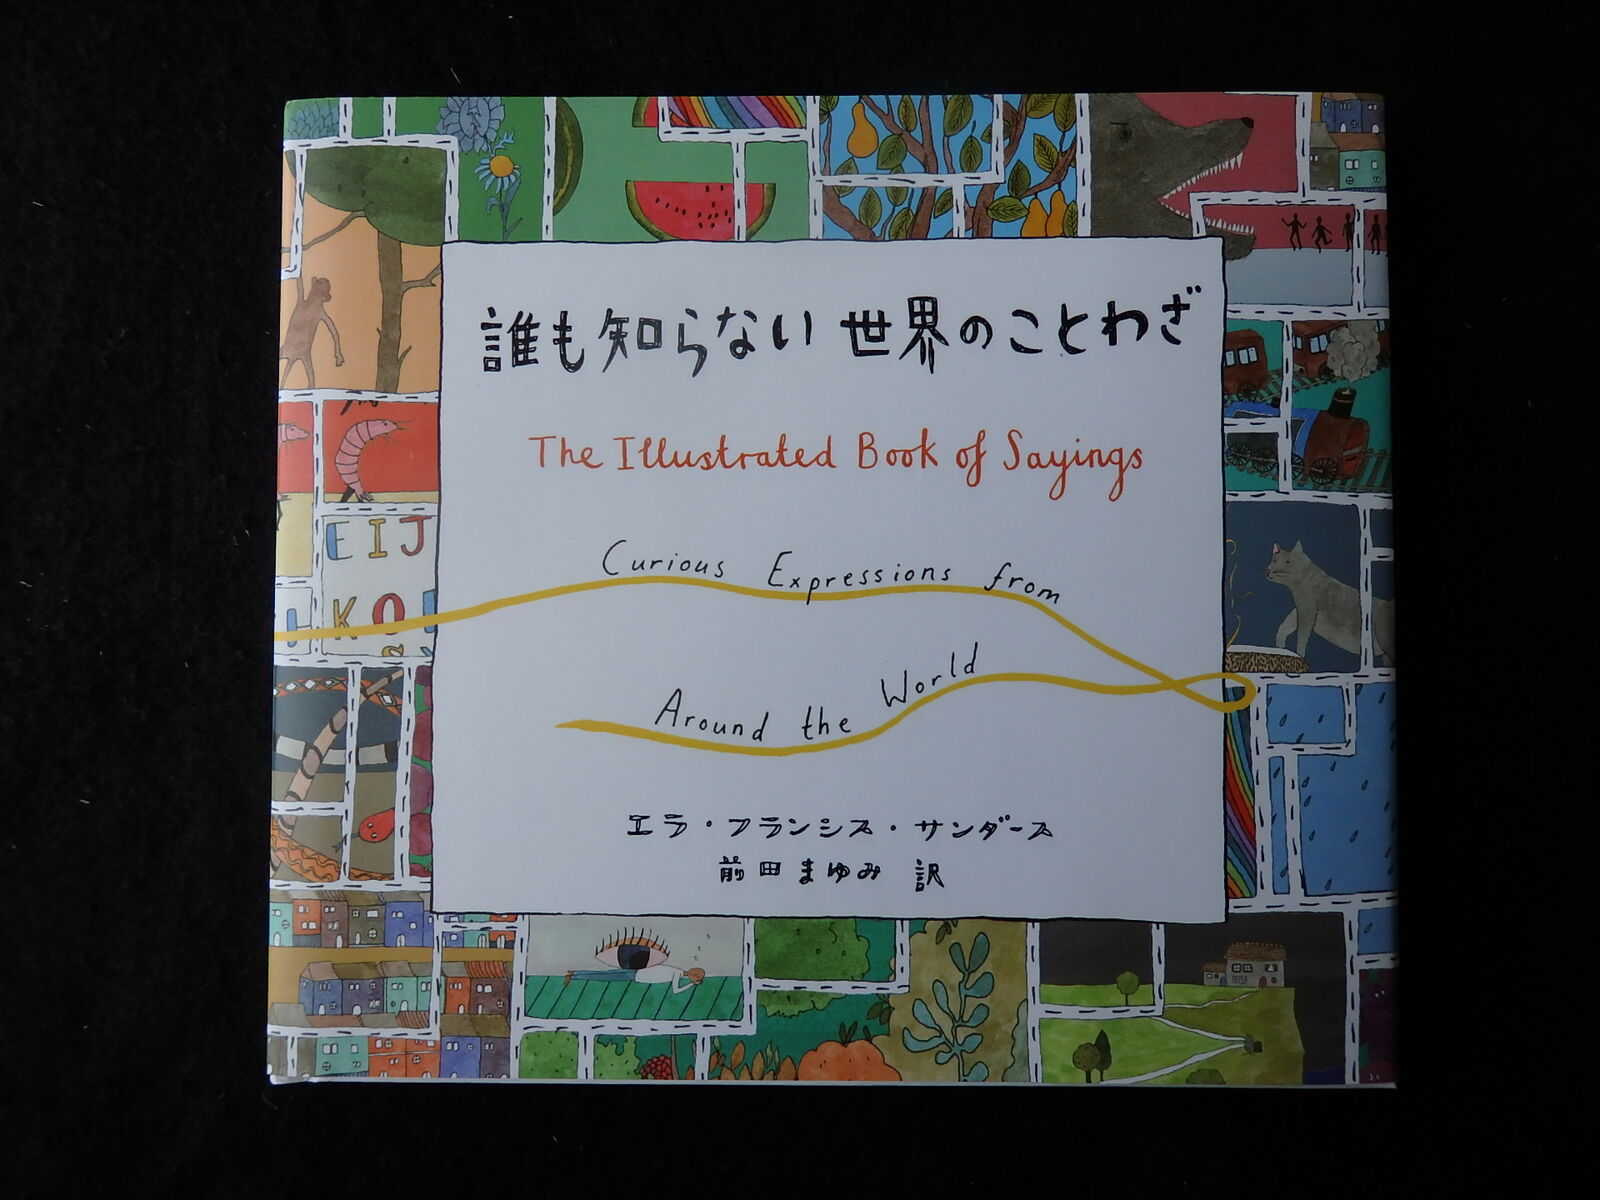 誰も知らない世界のことわざ
The Illustrated Book of Sayings
Curious Expressions from
Around the World
エラ・フランシス・サンダース
前田まゆみ 訳
EIJ
KO